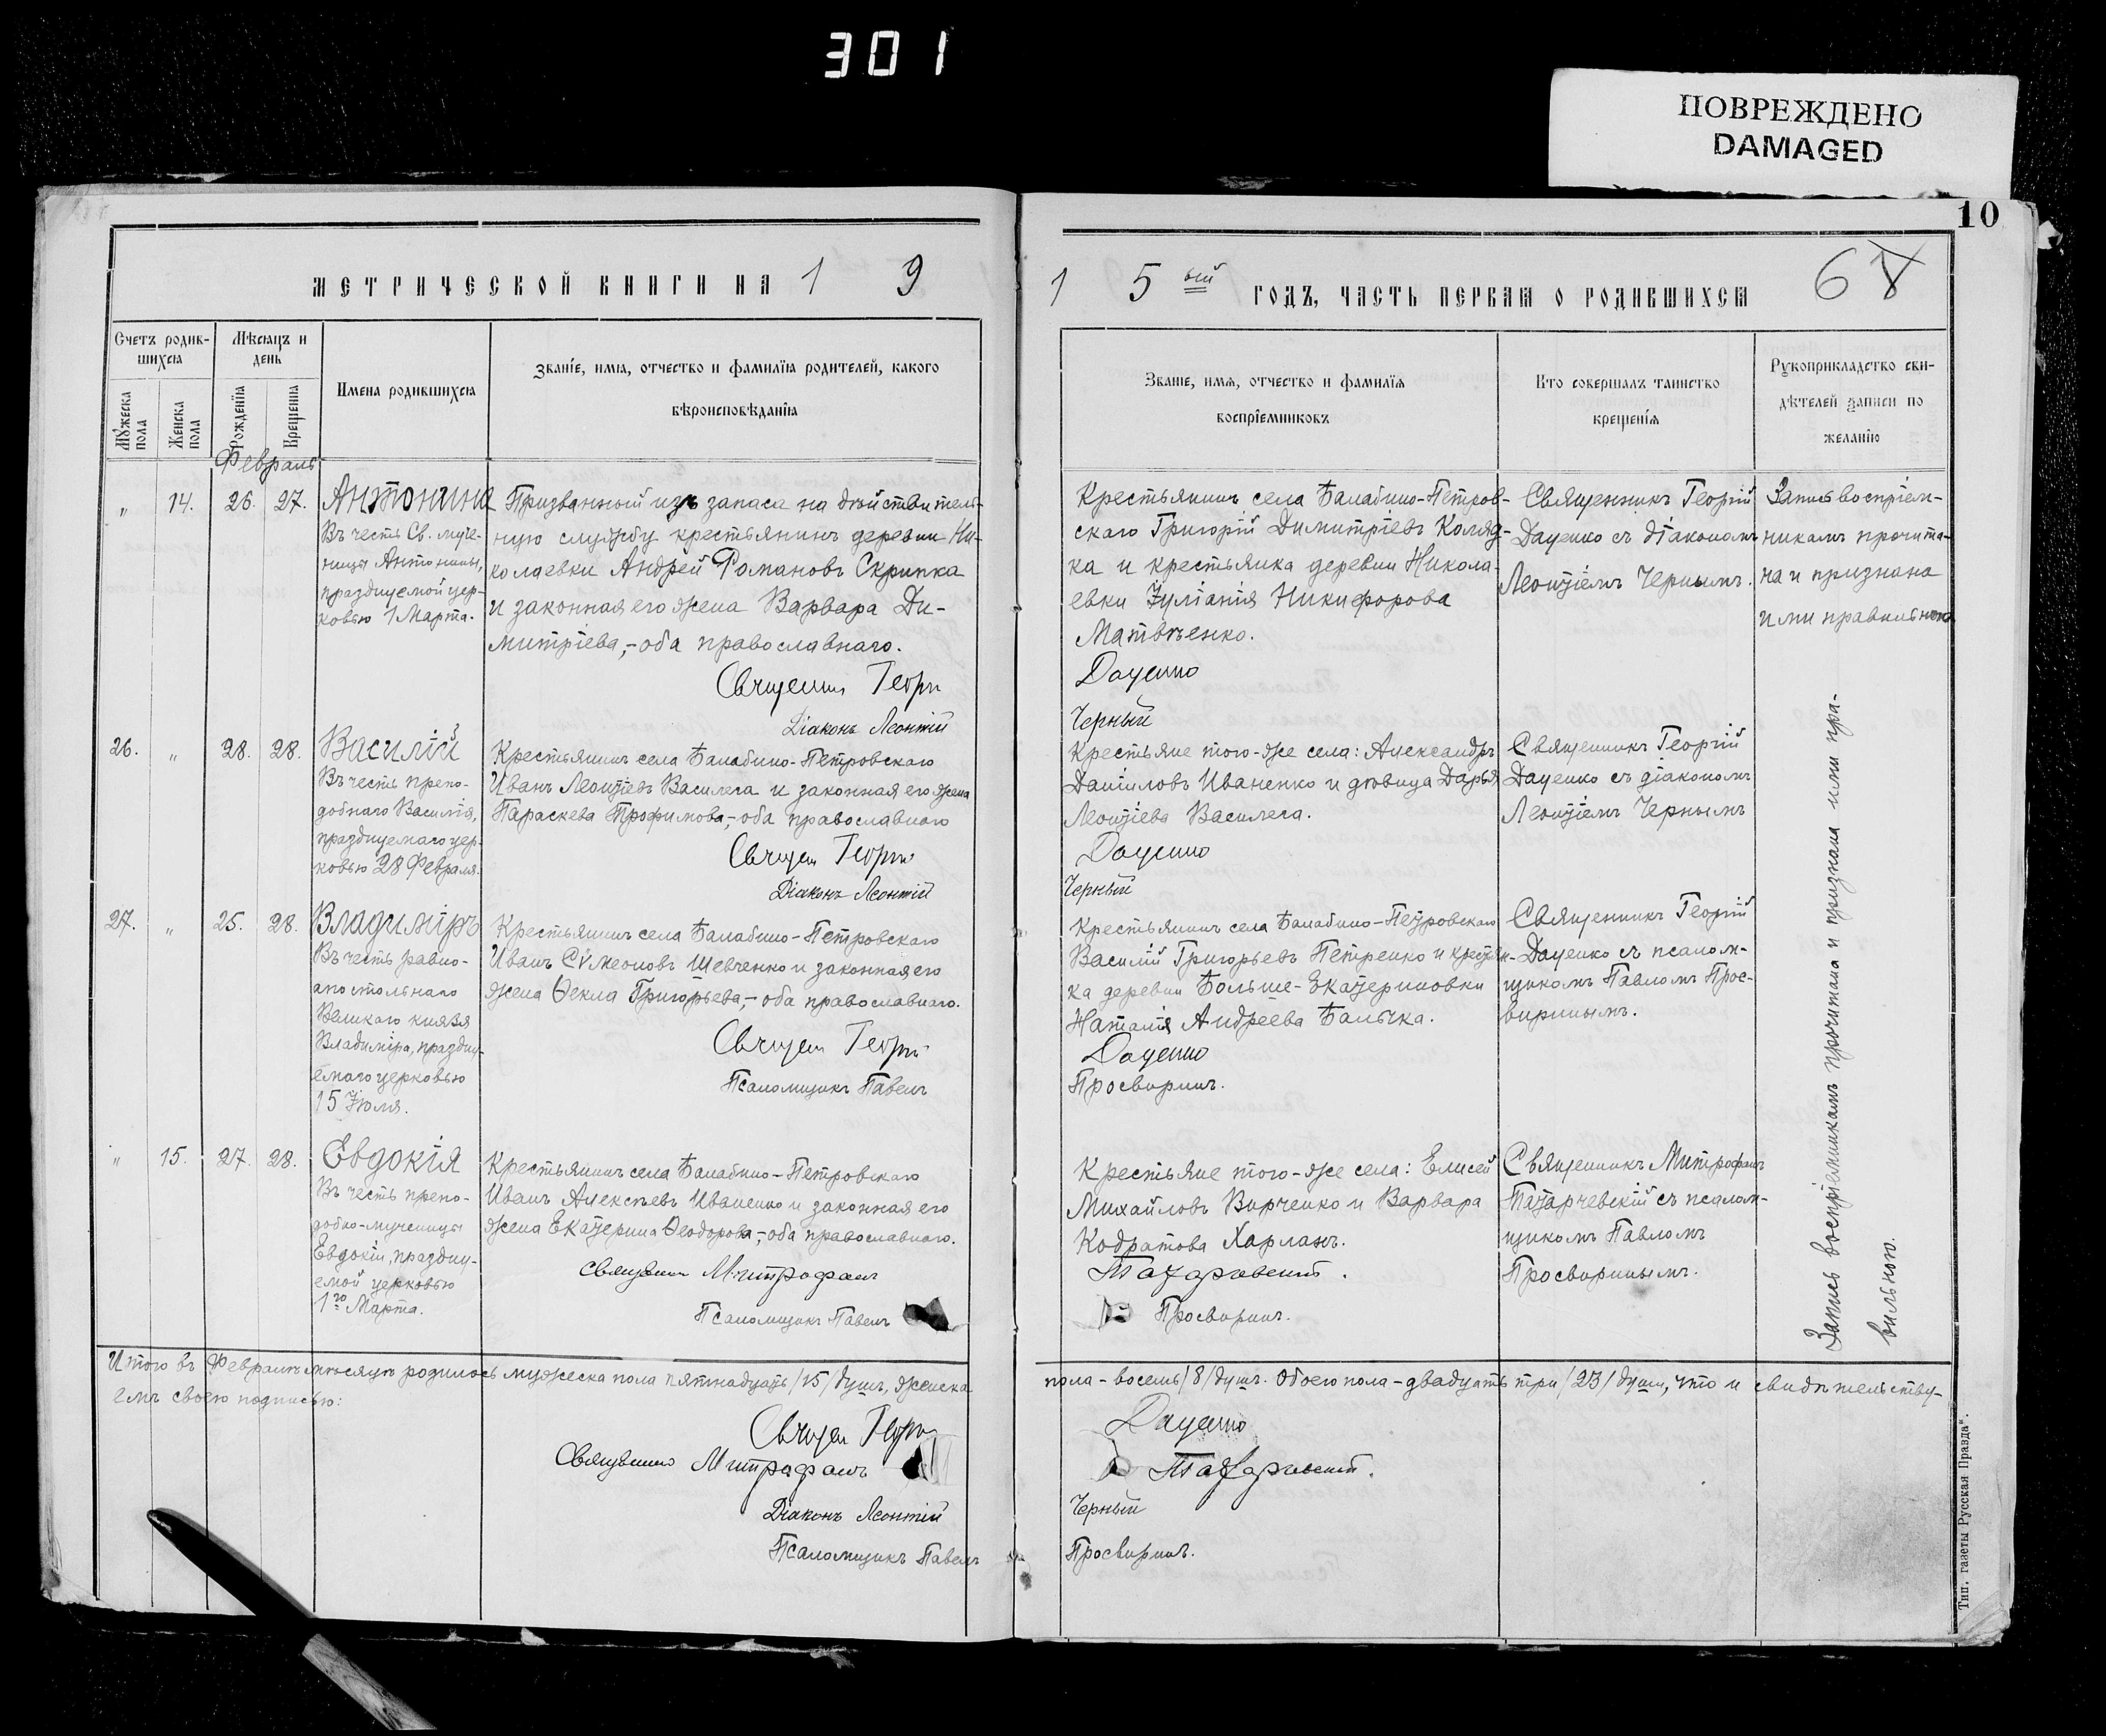 301
ПОВРЕЖДЕНО
DAMAGED
10
МЕТРИЧЕСКОЙ КНИГИ НА 1 9
1 5 ый ГОДЪ, ЧАСТЬ ПЕРВАЯ О РОДИВШИХСЯ
6
Счетъ родив-
шихся
Мужеска пола
Женска пола
Мѣсяцъ и
день
Рожденія
Крещенія
Имена родившихся
Званіе, имя, отчество и фамилія родителей, какого
вѣроисповѣданія
Званіе, имя, отчество и фамилія
воспріемниковъ
Кто совершалъ таинство
крещенія
Рукоприкладство сви-
дѣтелей записи по
желанію
Февраль
" 14. 26. 27.
Антонина
Въ честь Св. муче-
ницы Антонины,
празднуемой цер-
ковью 1 Марта.
Призванный изъ запаса на дѣйствитель-
ную службу крестьянинъ деревни Ни-
колаевки Андрей Романовъ Скрипка
и законная его жена Варвара Ди-
митріева,-оба православнаго.
Священникъ Георгій
Діаконъ Леонтій
Крестьянинъ села Балабино-Петров-
скаго Григорій Димитріевъ Коляд-
ка и крестьянка деревни Никола-
евки Іуліанія Никифорова
Матвѣенко.
Даценко
Черный
Священникъ Георгій
Даценко съ діакономъ
Леонтіемъ Чернымъ.
Запись воспріем-
никамъ прочита-
на и признана
ими правильною
26. " 28. 28.
Василій
Въ честь препо-
добнаго Василія,
празднуемаго цер-
ковью 28 Февраля.
Крестьянинъ села Балабино-Петровскаго
Иванъ Леонтіевъ Василега и законная его жена
Параскева Трофимова,-оба православнаго
Священ Георгій
Діаконъ Леонтій
Крестьяне того-же села: Александръ
Даніиловъ Иваненко и дѣвица Дарья
Леонтіева Василега.
Даценко
Черный
Священникъ Георгій
Даценко съ діакономъ
Леонтіемъ Чернымъ
27. " 25. 28.
Владиміръ
Въ честь равно-
апостольнаго
Великаго князя
Владиміра, праздну-
емаго церковью
15 Іюля.
Крестьянинъ села Балабино-Петровскаго
Иванъ Сѵмеоновъ Шевченко и законная его
жена Ѳекла Григорьева,-оба православнаго.
Священ Георгій
Псаломщикъ Павелъ
Крестьянинъ села Балабино-Петровскаго
Василій Григорьевъ Петренко и крестьян-
ка деревни Больше-Екатериновки
Наталія Андреева Балычка.
Даценко
Просвиринъ.
Священникъ Георгій
Даценко съ псалом-
щикомъ Павломъ Прос-
виринымъ.
" 15. 27. 28.
Евдокія
Въ честь препо-
добно-мученицы
Евдокіи, праздну-
емой церковью
1го Марта.
Крестьянинъ села Балабино-Петровскаго
Иванъ Алексѣевъ Иваненко и законная его
жена Екатерина Ѳеодорова,-оба православнаго.
Священникъ Митрофанъ
Псаломщикъ Павелъ
Крестьяне того-же села: Елисей
Михайловъ Вирченко и Варвара
Кодратова Харланъ.
Татарчевскій.
Просвиринъ.
Священникъ Митрофанъ
Татарчевскій съ псалом-
щикомъ Павломъ
Просвиринымъ.
Запись воспріемникамъ прочитана и признана ими пра-
вильною.
Итого въ Февралѣ мѣсяцѣ родилось мужеска пола пятнадцать /15/ душъ, женска
пола - восемь /8/ душъ. Обоего пола - двадцать три /23/ души, что и свидѣтельству-
емъ своею подписью:
Священ Георгій
Даценко
Священникъ Митрофанъ
Татарчевскій.
Діаконъ Леонтій
Черный
Псаломщикъ Павелъ
Просвиринъ.
Тип. газеты Русская Правда".